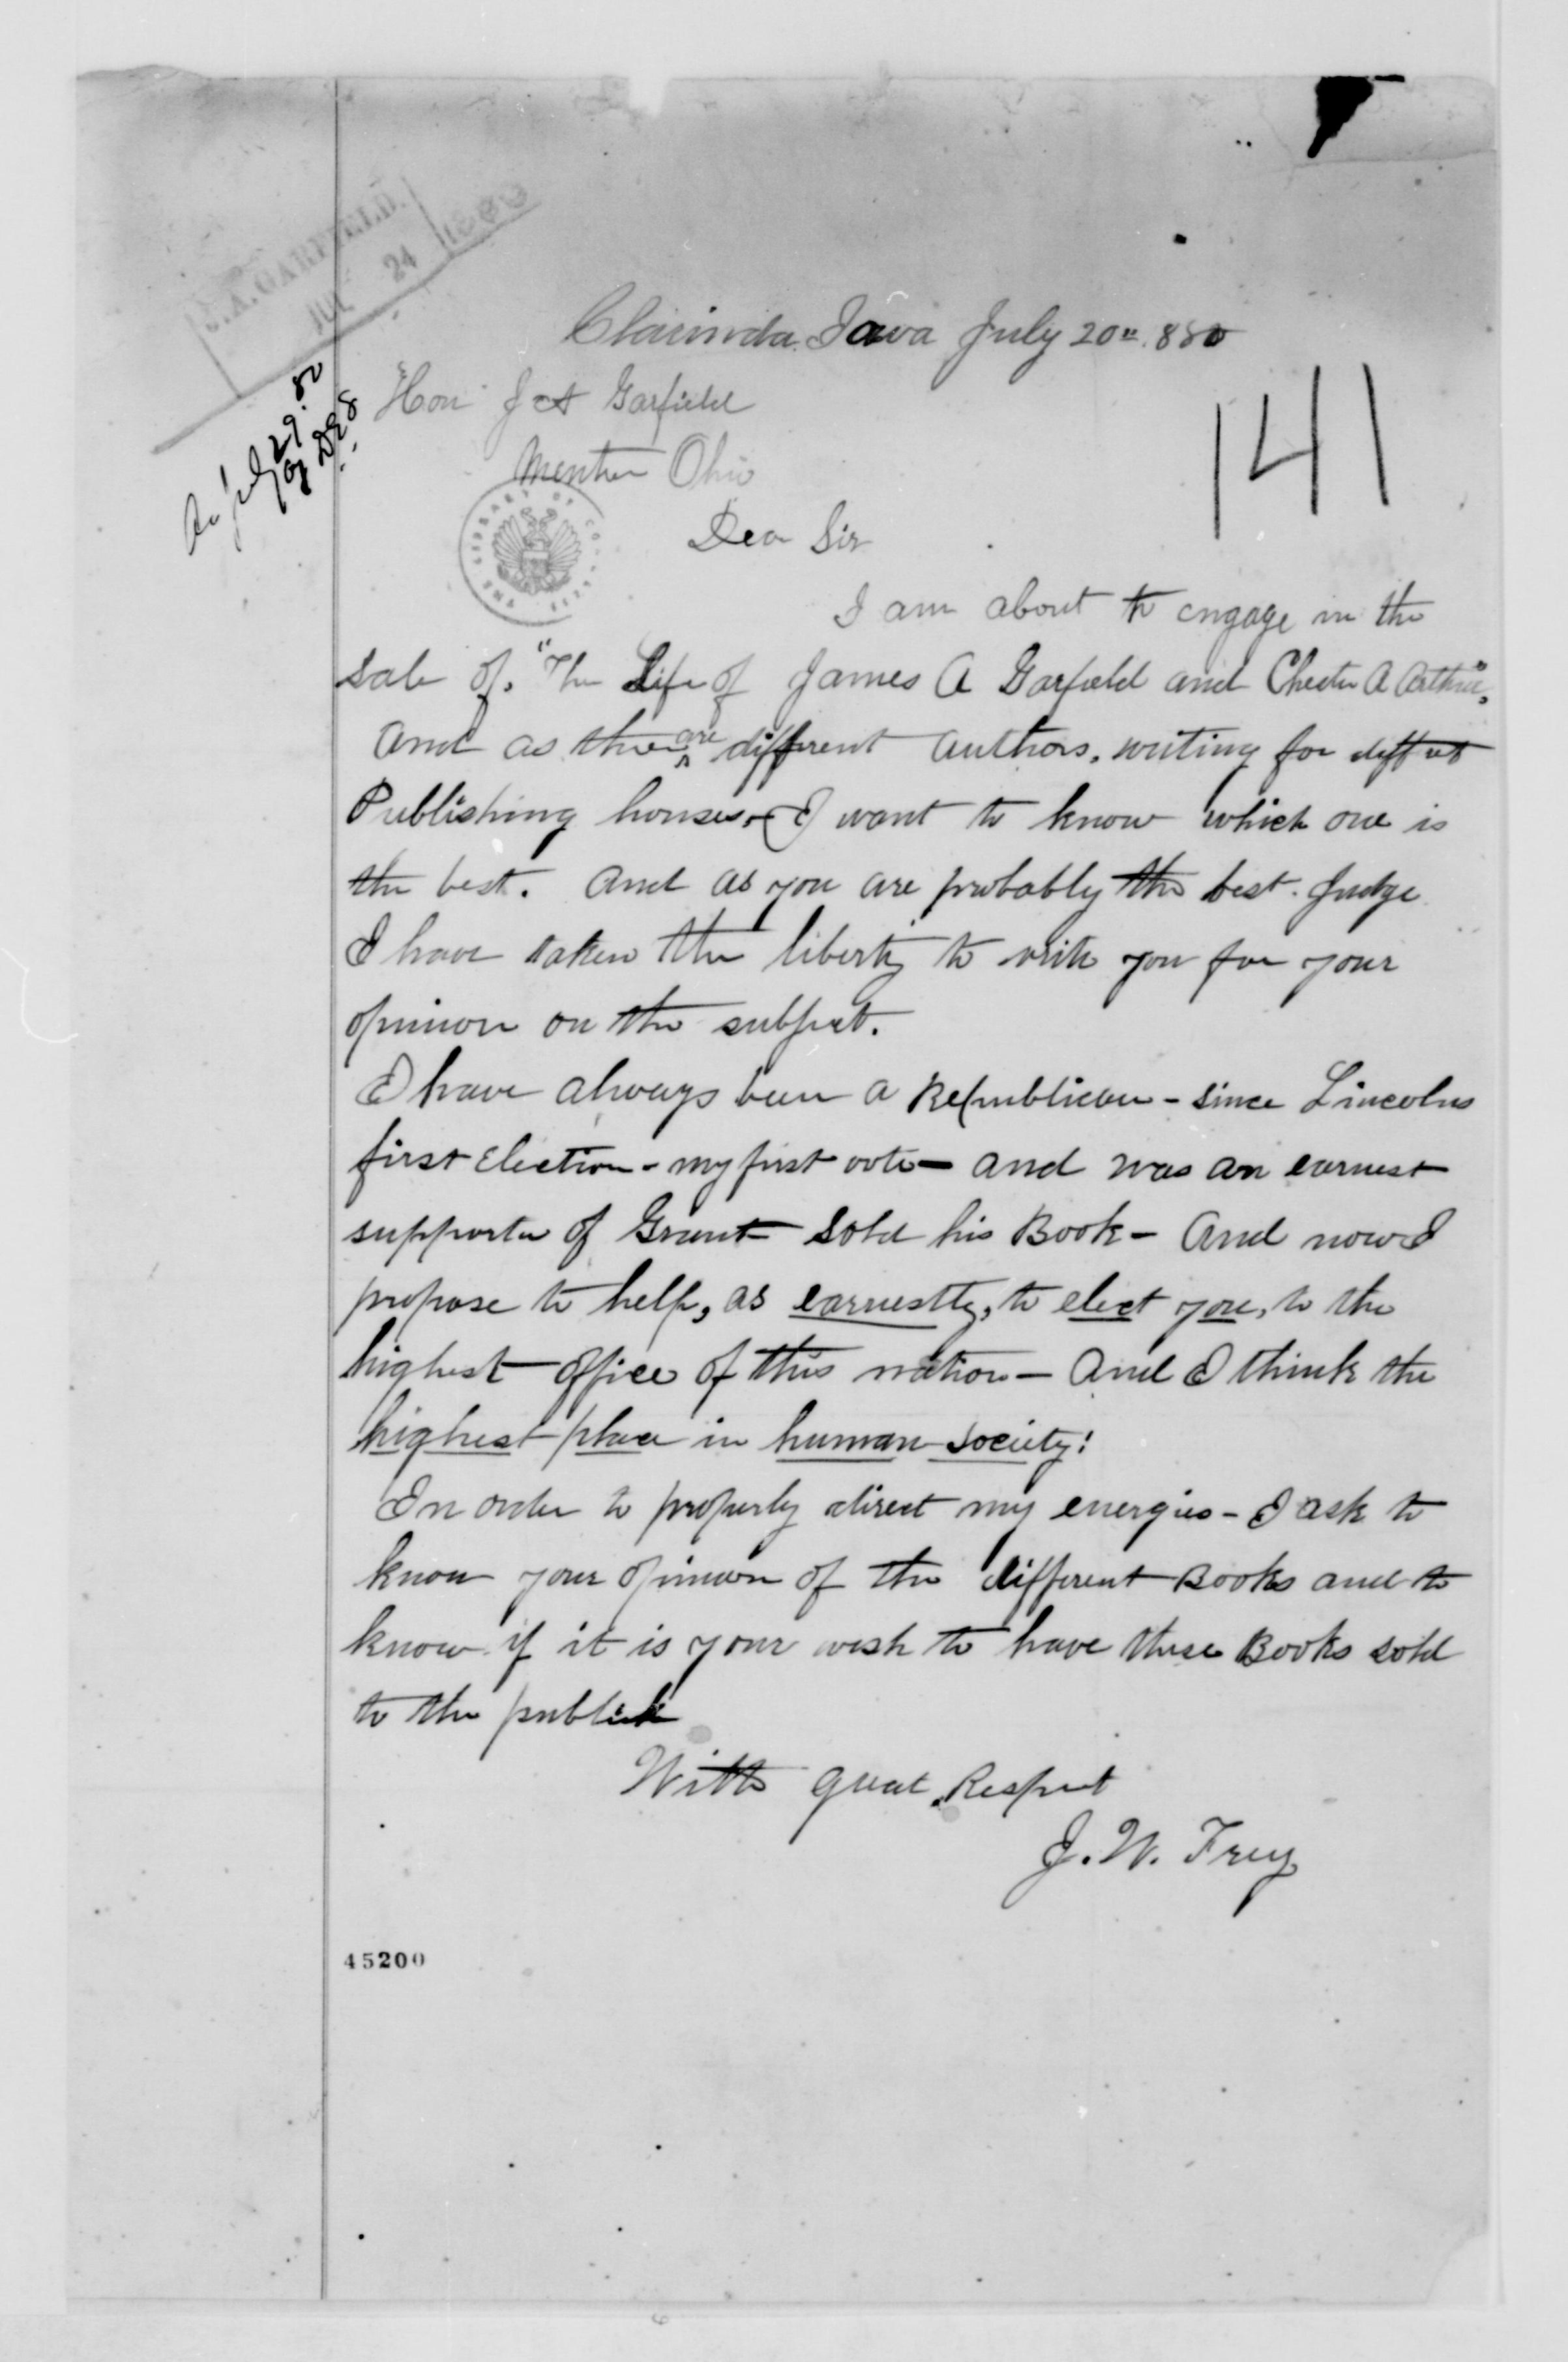 J. A. GARFIELD.
JUL 24 1880
An' July 29. 80
by
Clarinda. Iowa July 20". 880
141
Hon J A Garfield
Mentor Ohio
THE LIBRARY OF CONGRESS
Dear Sir
I am about to engage in the
sale of. "The Life of James A Garfield and Chester A Arthur".
And as there are different Authors, writing for different
Publishing houses, I want to know which one is
the best. And as you are probably the best Judge
I have taken the liberty to write you for your
opinion on the subject.
I have always been a Republican - since Lincolns
first Election - my first vote - and was an earnest
supporter of Grant - Sold his Book - And now I
propose to help, as earnestly, to elect you, to the
highest office of this nation - And I think the
highest place in human society!
In order to properly direct my energies - I ask to
know your opinion of the different Books and to
know if it is your wish to have these Books sold
to the publick
With great Respect
J. W. Frey
45200